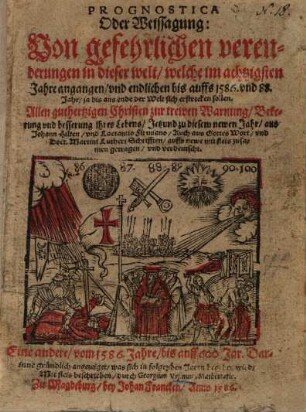 N 18.
PROGNOSTICA
Oder Weissagung:
Von gefehrlichen veren-
derungen in dieser welt/ welche im achtzigsten
Jahre angangen/ vnd endlichen bis auffs 1586. vnd 88.
Jahr/ ja bis ans ende der Welt sich erstrecken sollen.
Allen guthertzigen Christen zur trewen Warnung/ Beke-
rung vnd besserung ihres Lebens/ Jetzund zu diesem newen Jahr/ aus
Johann Hilten/ vnd Lactantio Firmiano/ Auch aus Gottes Wort/ vnd
Doct. Martini Luthers Schrifften/ auffs newe mit fleis zusa-
men gezogen/ vnd verdeutscht.
86. 87. 88. 89. 90-100
Eine andere/ vom 1586. Jahre/ bis auff 600 Jar. Dar-
inne gründlich angezeiget/ was sich in solchen Jaren
mit fleis beschrieben/ durch Georgium
Zu Magdeburg/ bey Johan Francken/ Anno 1586.